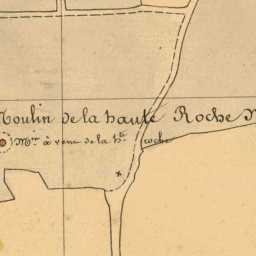 Moulin de la haute Roche
Mⁱⁿ à vent de la hᵗᵉ roche